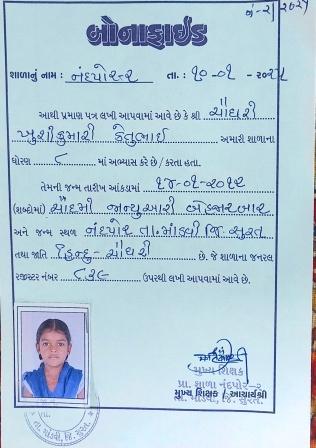 નં-૨/૨૦૨૫
બોનાફાઈડ
શાળાનું નામ : નંદપોર-૨ તા. : ૧૦-૦૧-૨૦૨૫
આથી પ્રમાણ પત્ર લખી આપવામાં આવે છે કે શ્રી ચૌધરી
ખુશીકુમારી કેતુભાઈ અમારી શાળાના
ધોરણ ૮ માં અભ્યાસ કરે છે / કરતા હતા.
તેમની જન્મ તારીખ આંકડામાં ૧૪-૦૧-૨૦૧૨
(શબ્દોમાં) ચૌદમી જાન્યુઆરી બેહજારબાર
અને જન્મ સ્થળ નંદપોર તા. માંડવી જિ. સુરત
તથા જાતિ હિન્દુ-ચૌધરી છે. જે શાળાના જનરલ
રજીસ્ટર નંબર ૮૩૯ ઉપરથી લખી આપવામાં આવે છે.
મુખ્ય શિક્ષક
પ્રા. શાળા નંદપોર-૨
મુખ્ય શિક્ષક / આચાર્યશ્રી
તા. માંડવી, જિ. સુરત.
તા. માંડવી, જિ. સુરત.